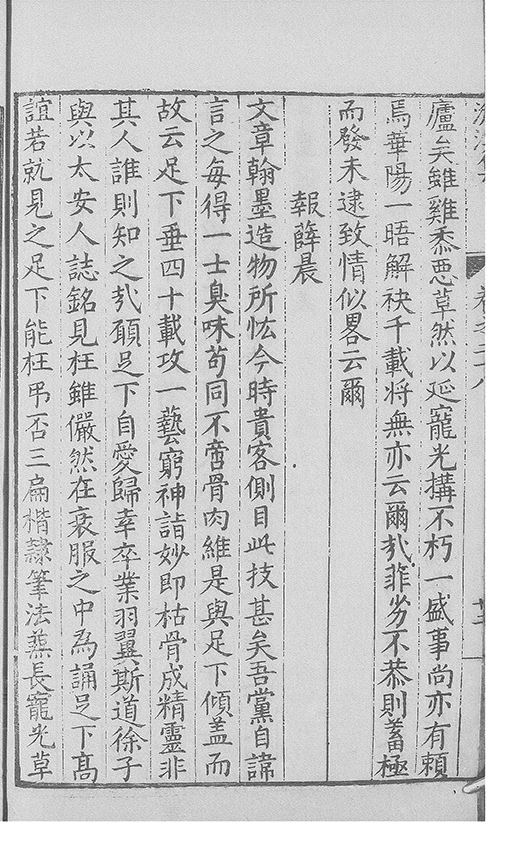 卷之二十八
廬矣雖雞黍思草然以延寵光搆不朽一盛事尚亦有賴
焉華陽一晤解袂千載将無亦云爾㢤菲劣不恭則蓄極
而發未逮致情似畧云爾
報薛晨
文章翰墨造物所忲今時貴客側目此技甚矣吾黨自諱
言之每得一士臭味苟同不啻骨肉維是與足下傾盖而
故云足下垂四十載攻一藝窮神詣妙即枯骨成精靈非
其人誰則知之㢤願足下自愛歸幸卒業羽翼斯道徐子
與以太安人誌銘見枉雖儼然在衰服之中為誦足下髙
誼若就見之足下能枉弔否三扁楷隸筆法兼長寵光草